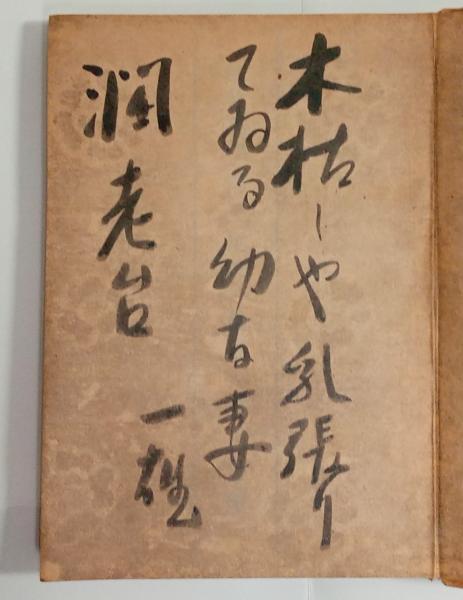 木枯しや乳張り
てゐる幼な妻
潤老台
一雄